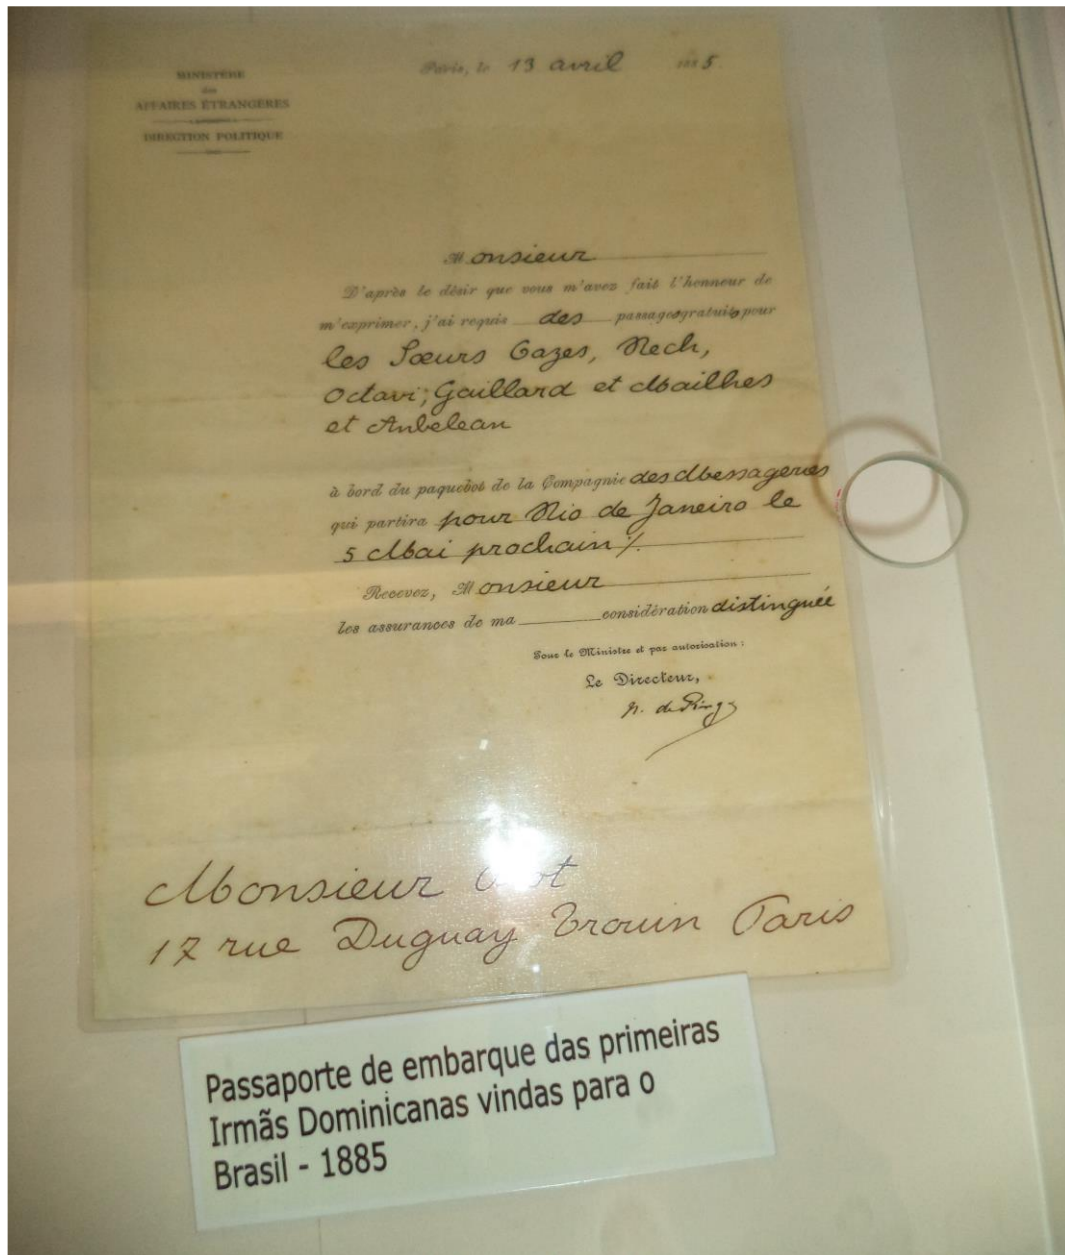 MINISTÈRE
des
AFFAIRES ÉTRANGÈRES
DIRECTION POLITIQUE
Paris, le 13 avril 1885.
Monsieur
D'après le désir que vous m'avez fait l'honneur de
m'exprimer, j'ai requis des passages gratuits pour
les Sœurs Cazes, Nech,
Octavi; Gaillard et Mailhes
et Anbelean
à bord du paquebot de la Compagnie des Messageries
qui partira pour Rio de Janeiro le
5 Mai prochain %.
Recevez, Monsieur
les assurances de ma considération distinguée
Pour le Ministre et par autorisation :
Le Directeur,
de Ring
Monsieur
17 rue Duguay Trouin Paris
Passaporte de embarque das primeiras
Irmãs Dominicanas vindas para o
Brasil - 1885